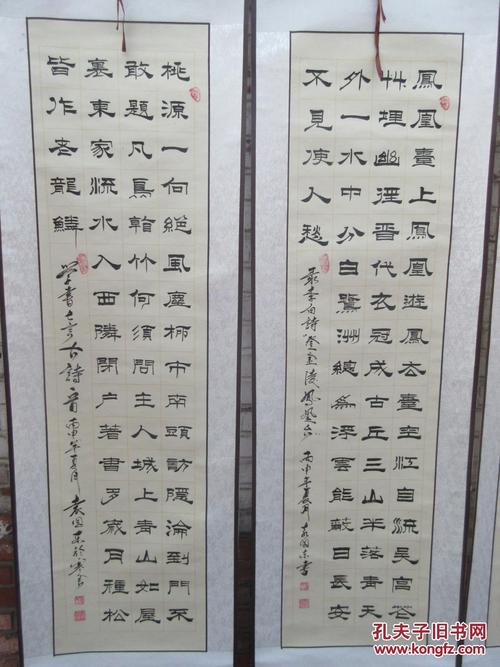 鳳凰臺上鳳凰遊鳳去臺空江自流吳宮花
艸埋幽徑晉代衣冠成古丘三山半落青天
外一水中分白鷺洲總為浮雲能蔽日長安
不見使人愁
李白詩登金陵鳳凰台 丙申年夏月 袁国东書
桃源一向絕風塵柳市南頭訪隱淪到門不
敢題凡鳥看竹何須問主人城上青山如屋
裏東家流水入西隣閉户著書多歲月種松
皆作老龍鱗
学書七言古詩一首 丙申年夏月 袁国东於寒舍
孔夫子旧书网
www.kongfz.com